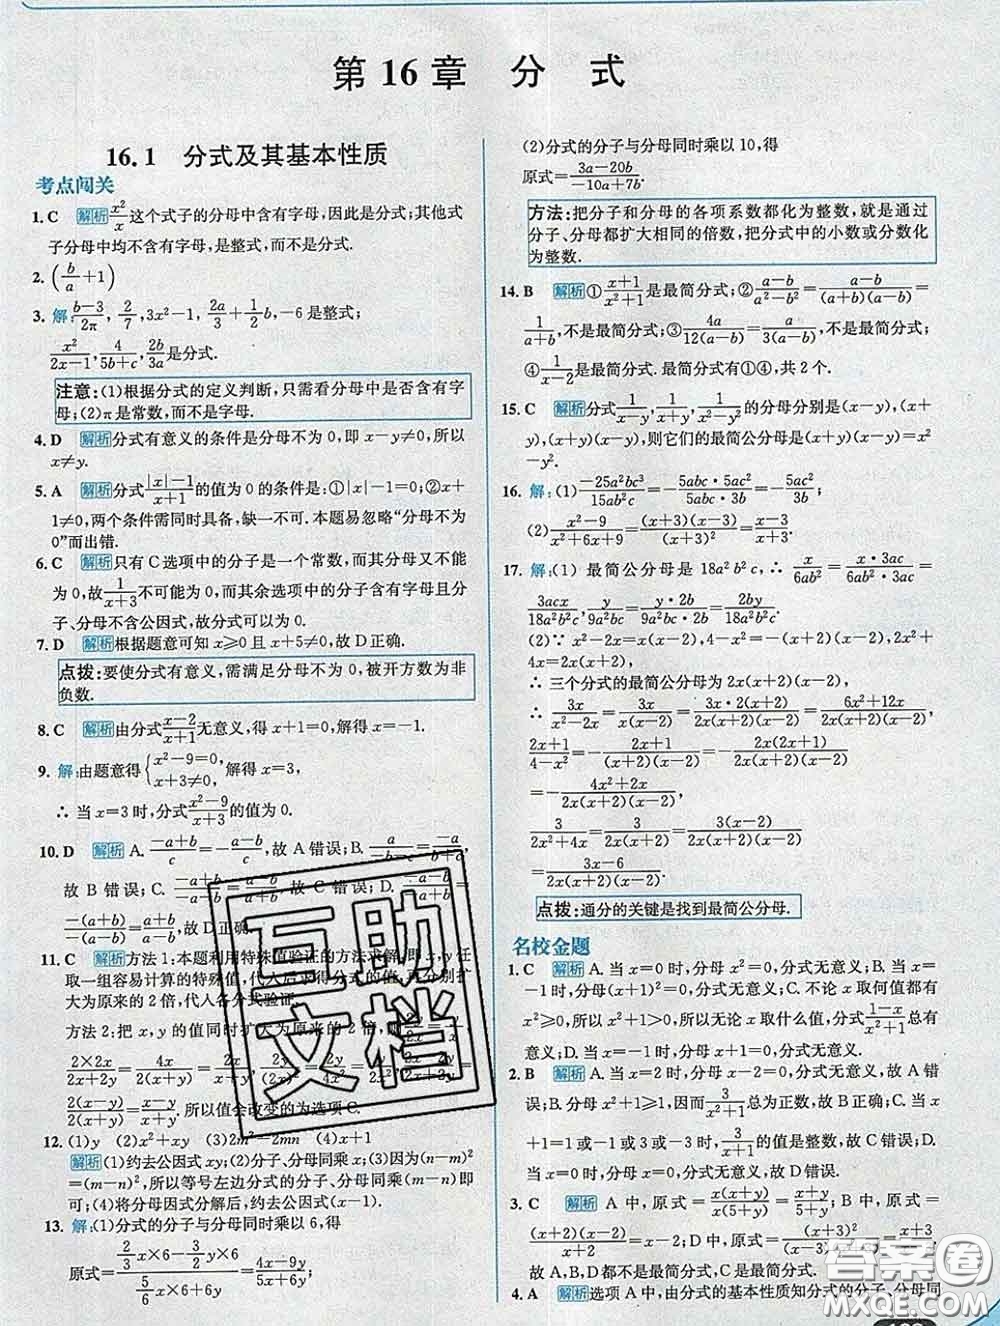 第16章 分 式
16.1 分式及其基本性质
考点闯关
1. C 解析 x²/x 这个式子的分母中含有字母,因此是分式;其他式
子分母中均不含有字母,是整式,而不是分式.
2. (b/a+1)
3. 解: (b-3)/(2π), 2/7, 3x²-1, 2a/3+1/2 b, -6是整式;
x²/(2x-1), 4/(5b+c), 2b/3a 是分式.
注意:(1)根据分式的定义判断,只需看分母中是否含有字
母;(2)π是常数,而不是字母.
4. D 解析 分式有意义的条件是分母不为0,即x-y≠0,所以
x≠y.
5. A 解析 分式(|x|-1)/(x+1)的值为0的条件是:①|x|-1=0;②x+
1≠0,两个条件需同时具备,缺一不可.本题易忽略“分母不为
0”而出错.
6. C 解析 只有C选项中的分子是一个常数,而其分母又不可能
为0,故1/(x+3)不可能为0,而其余选项中的分子含有字母且分
子、分母不含公因式,故分式可以为0.
7. D 解析 根据题意可知x≥0且x+5≠0,故D正确.
点拨:要使分式有意义,需满足分母不为0,被开方数为非
负数.
8. C 解析 由分式(x-2)/(x+1)无意义,得x+1=0,解得x=-1.
9. 解:由题意得{x²-9=0, x+3≠0, 解得x=3,
∴当x=3时,分式(x²-9)/(x+3)的值为0.
10. D 解析 A. (-a+b)/c=-(a-b)/c,故A错误;B. a/(-b+c)=-a/(b-c),
故B错误;C. (-a-b)/c=-(a+b)/c,故C错误;D. (-a-b)/(-a+b)
=-(a+b)/-(a-b)=(a+b)/(a-b),故D正确.
11. C 解析 方法1:本题利用特殊值验证的方法求解,即x,y任
取一组容易计算的特殊值,代入后求得分式的值,再分别扩
大为原来的2倍,代入各分式验证.
方法2:把x,y的值同时扩大为原来的2倍,
(2×2x)/(2x+2y)=4x/2(x+y)=2x/(x+y)
2(x-y)/2(x+y)=(x-y)/(x+y). 所以值会改变的为选项C.
12. (1)y (2)x²+xy (3)2m²-2mn (4)x
解析 (1)约去公因式xy;(2)分子、分母同乘x;(3)因为(n-m)²
=(m-n)²,所以等号左边分式的分子、分母同乘(m-n)即
可;(4)将分母因式分解后,约去公因式(x-1).
13. 解:(1)分式的分子与分母同时乘以6,得
原式=(2/3 x×6-3/2 y×6)/(5/6 x×6+y×6)=(4x-9y)/(5x+6y);
(2)分式的分子与分母同时乘以10,得
原式=(3a-20b)/(-10a+7b).
方法:把分子和分母的各项系数都化为整数,就是通过
分子、分母都扩大相同的倍数,把分式中的小数或分数化
为整数.
14. B 解析 ①(x+1)/(x²+1)是最简分式;②(a-b)/(a²-b²)=(a-b)/(a+b)(a-b)=
1/(a+b),不是最简分式;③4a/12(a-b)=a/3(a-b),不是最简分式;
④1/(x-2)是最简分式.最简分式有①④,共2个.
15. C 解析 分式1/(x-y), 1/(x+y), 1/(x²-y²)的分母分别是(x-y),(x+
y),(x+y)(x-y),则它们的最简公分母是(x+y)(x-y)=x²
-y².
16. 解:(1) -25a²bc³/15ab²c=-(5abc·5ac²)/(5abc·3b)=-5ac²/3b;
(2)(x²-9)/(x²+6x+9)=(x+3)(x-3)/(x+3)²=(x-3)/(x+3).
17. 解:(1)最简公分母是18a²b²c,∴ x/6ab²=(x·3ac)/(6ab²·3ac)=
3acx/18a²b²c, y/9a²bc=(y·2b)/(9a²bc·2b)=2by/18a²b²c.
(2)∵x²-2x=x(x-2),4-x²=-(x+2)(x-2),2x²+
4x=2x(x+2),
∴三个分式的最简公分母为2x(x+2)(x-2),
∴ 3x/(x²-2x)=3x/x(x-2)=3x·2(x+2)/2x(x+2)(x-2)=(6x²+12x)/2x(x+2)(x-2),
(2x+1)/(4-x²)=-(2x+1)/(x+2)(x-2)=-2x(2x+1)/2x(x+2)(x-2)
=-(4x²+2x)/2x(x+2)(x-2),
3/(2x²+4x)=3/2x(x+2)=3(x-2)/2x(x+2)(x-2)=
(3x-6)/2x(x+2)(x-2).
点拨:通分的关键是找到最简公分母.
名校金题
1. C 解析 A.当x=0时,分母x²=0,分式无意义;B.当x=
-1时,分母(x+1)²=0,分式无意义;C.不论x取何值都有
x²≥0,所以x²+1>0,所以无论x取什么值,分式(1-x)/(x²+1)总有
意义;D.当x=-1时,分母x+1=0,分式无意义.
2. B 解析 A.当x=2时,分母x-2=0,分式无意义,故A错
误;B.分母x²+1≥1,因而1/(x²+1)总为正数,故B正确;C.当x
+1=1或-1或3或-3时,3/(x+1)的值是整数,故C错误;D.
当x=0时,分母x=0,分式无意义,故D错误.
3. C 解析 A中,原式=x(x+y)/x(5+y)=(x+y)/(5+y);B中,原式=
(x+2)(x-2)/(x+2)=x-2;D中,原式=
所以A,B,D都不是最简分式,C是最简分式.
4. A 解析 选项A中,由分式的基本性质知分式的分子、分母同
互助文档
答案圈
MXQE.COM